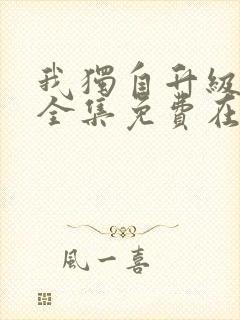 我獨自升級
全集免費在
風一喜